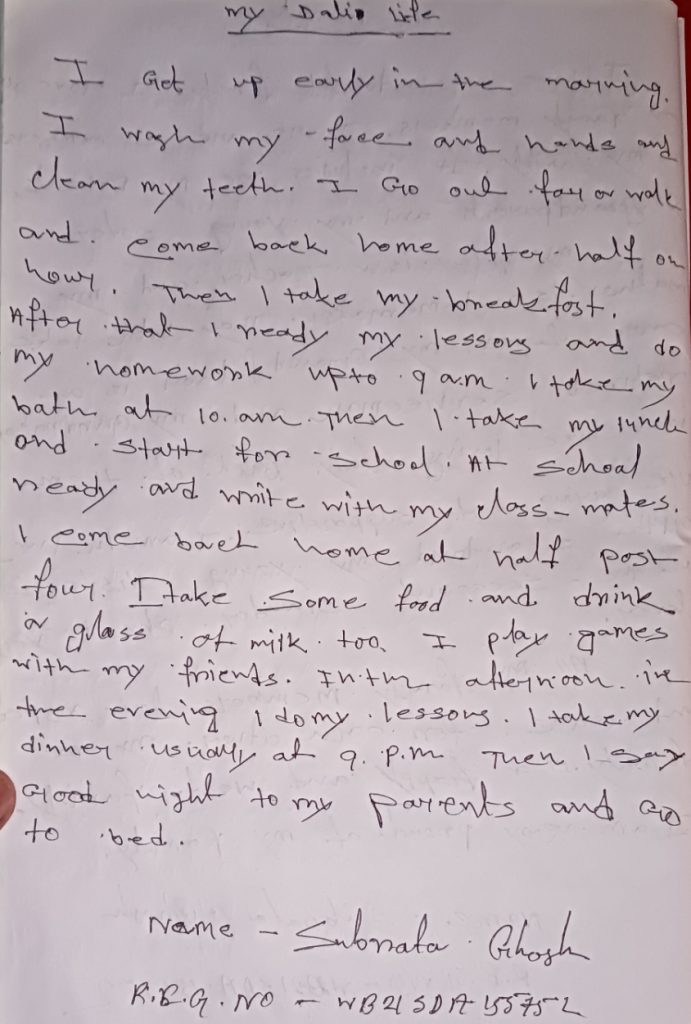 my Dalip life
I Get up early in the morning.
I wash my face and hands and
clean my teeth. I Go out for a walk
and. come back home after half an
hour. Then I take my breakfast.
After that I ready my lessons and do
my homework upto 9 a.m. I take my
bath at 10. am. Then I take my lunch
and start for school. At school
ready and write with my class-mates.
I come back home at half past
four. I take some food and drink
a glass of milk too. I play games
with my friends. In the afternoon. in
the evening I do my lessons. I take my
dinner usually at 9. p.m Then I say
Good night to my parents and Go
to bed.
Name - Subrata Ghosh
R.E.G. NO - WB21SDA